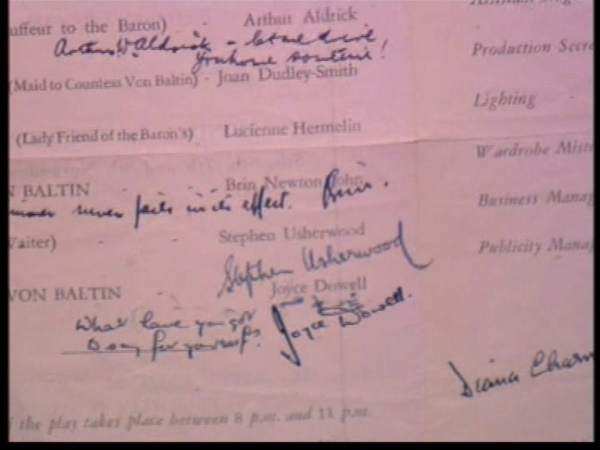 uffeur to the Baron) Arthur Aldrick
Arthur W. Aldrick -
souvenir!
(Maid to Countess Von Baltin) - Joan Dudley-Smith
Production Secre
Lighting
(Lady Friend of the Baron's) Lucienne Hermelin
Wardrobe Mist
N BALTIN Brin Newton John
never fails in its effect. Brin.
Business Manag
Vaiter) Stephen Usherwood
Stephen Usherwood
Publicity Manag
VON BALTIN Joyce Dowell
What have you got
to say for yourself? Joyce Dowell.
Diana Charn
f the play takes place between 8 p.m. and 11 p.m.